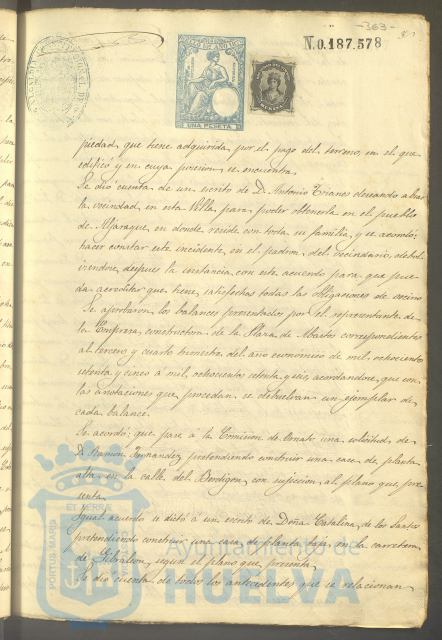 -363-
N.0.187.578
UNA PESETA
piedad que tiene adquirida por el pago del terreno, en el que
edificó y en cuya posesion se encuentra.
Se dió cuenta de un escrito de D. Antonio Trianes deseando alzar
la vecindad en esta Villa, para poder obtenerla en el pueblo
de Aljaraque, en donde reside con toda su familia, y se acordó:
hacer constar este incidente, en el padron del vecindario, debol-
viendose, despues la instancia con este acuerdo para que pue-
da acreditar que tiene satisfechas todas las obligaciones de vecino.
Se aprobaron los balances presentados por el representante de
la Empresa constructora de la Plaza de Abastos correspondientes
al tercero y cuarto trimestre del año economico de mil ochocientos
setenta y cinco á mil ochocientos setenta y seis, acordandose, que con
las anotaciones que procedan se debuelvan un ejemplar de
cada balance.
Se acordó: que pase á la Comision de Ornato una solicitud de
D. Ramon Fernandez pretendiendo construir una casa de planta
alta en la calle del Bendigon, con sujecion al plano que pre-
senta.
Igual acuerdo se dictó á un escrito de Doña Catalina de los Santos
pretendiendo construir una casa de planta baja en la carretera
de Gibraleon, segun el plano que presenta.
Se dió cuenta de todos los antecedentes que se relacionan
PORTUS MARIS
ET TERRÆ
Ayuntamiento de
HUELVA